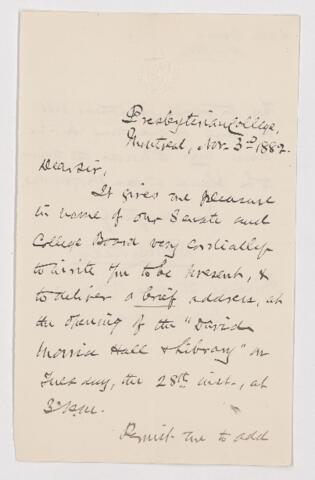 Presbyterian College,
Montreal, Nov. 3rd 1882.
Dear Sir,
It gives me pleasure
in name of our Senate and
College Board very cordially
to invite you to be present, &
to deliver a brief address, at
the opening of the "David
Morrice Hall & Library" on
Tuesday, the 28th inst., at
3 P.M.
Permit me to add